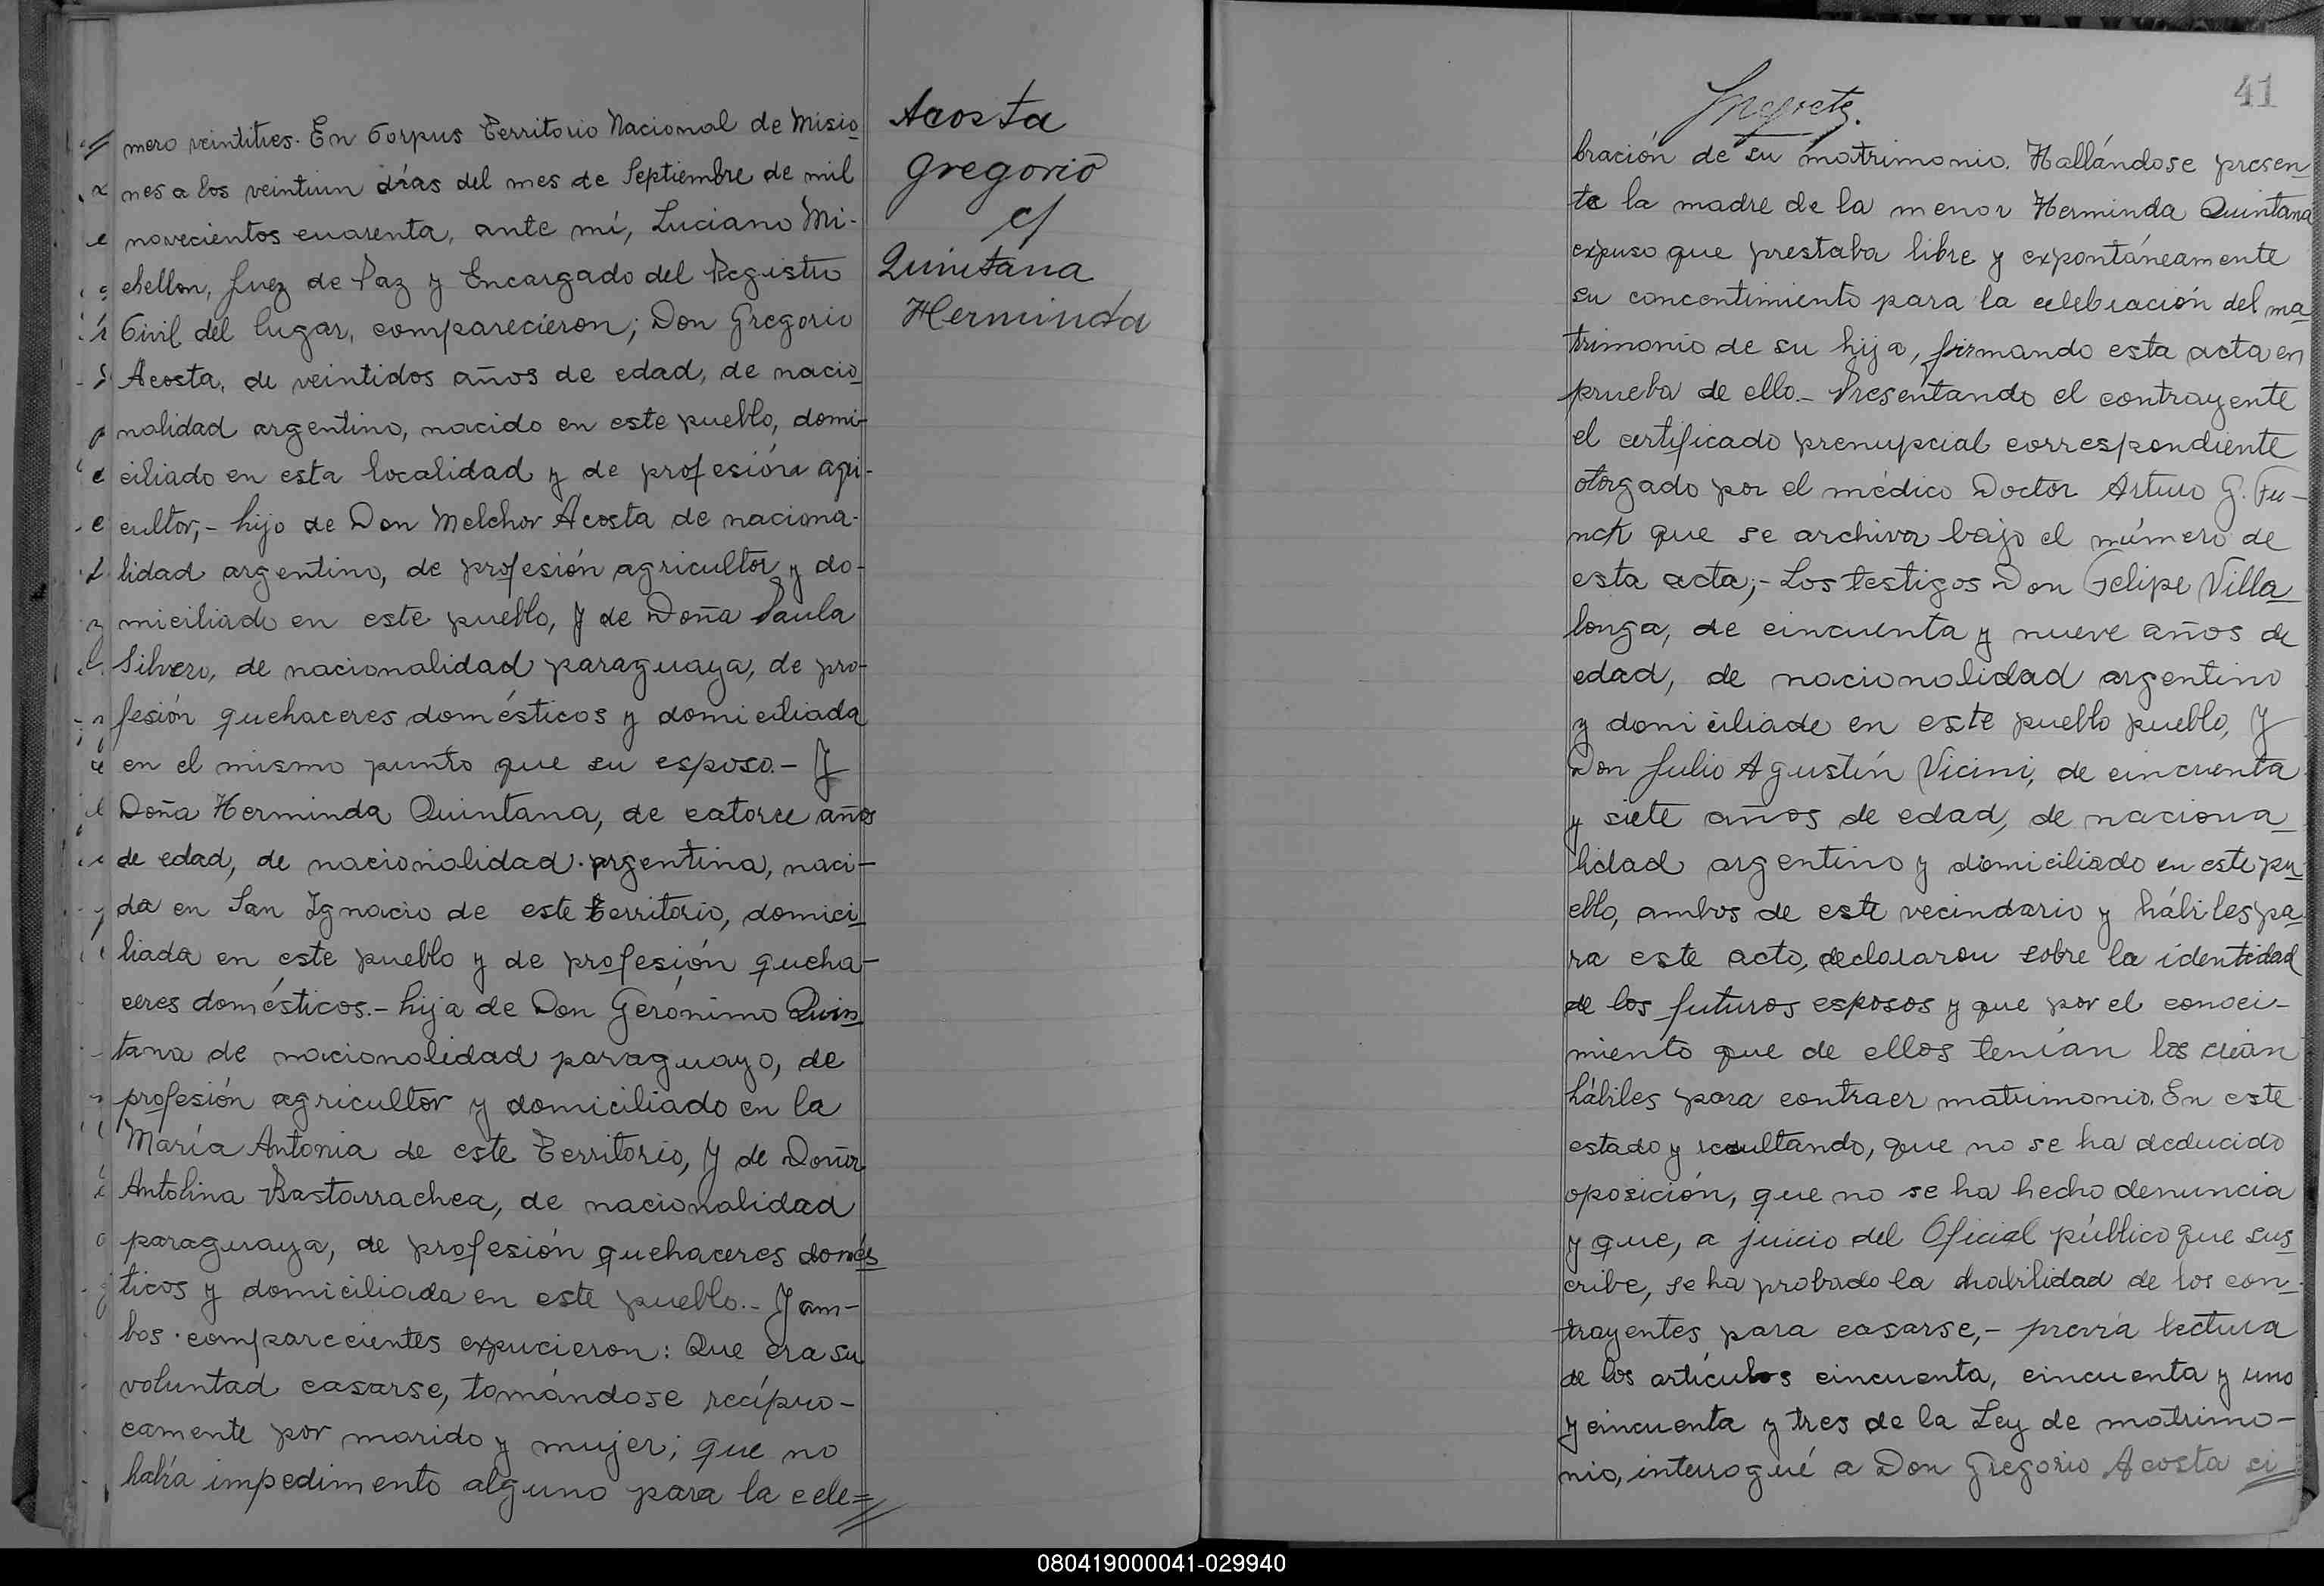 mero veintitres. En Corpus Territorio Nacional de Misio
nes a los veintiun días del mes de Septiembre de mil
novecientos cuarenta, ante mí, Luciano Mi-
chellon, Juez de Paz y Encargado del Registro
Civil del lugar, comparecieron; Don Gregorio
Acosta, de veintidos años de edad, de nacio
nalidad argentino, nacido en este pueblo, domi-
ciliado en esta localidad y de profesión agri-
cultor,- hijo de Don Melchor Acosta de naciona-
lidad argentino, de profesión agricultor y do-
miciliado en este pueblo, Y de Doña Paula
Silvero, de nacionalidad paraguaya, de pro-
fesión quehaceres domésticos y domiciliada
en el mismo punto que su esposo.- Y
Doña Herminda Quintana, de catorce años
de edad, de nacionalidad argentina, naci-
da en San Ignacio de este territorio, domici
liada en este pueblo y de profesión queha-
ceres domésticos.- hija de Don Gerónimo Quin
tana de nacionalidad paraguayo, de
profesión agricultor y domiciliado en la
María Antonia de este Territorio, Y de Doña
Antolina Bastarrachea, de nacionalidad
paraguaya, de profesión quehaceres domés
ticos y domiciliada en este pueblo.- Y am-
bos comparecientes expucieron: Que era su
voluntad casarse, tomándose recípro-
camente por marido y mujer; que no
había impedimento alguno para la cele=
Acosta
Gregorio
c/
Quintana
Herminda
41
bración de su matrimonio. Hallándose presen
te la madre de la menor Herminda Quintana
expuso que prestaba libre y expontáneamente
su concentimiento para la celebración del ma
trimonio de su hija, firmando esta acta en
prueba de ello.- Presentando el contrayente
el certificado prenupcial correspondiente
otorgado por el médico Doctor Arturo G. Fu-
nck que se archiva bajo el número de
esta acta;- Los testigos Don Felipe Villa
longa, de cincuenta y nueve años de
edad, de nacionalidad argentino
y domiciliado en este pueblo pueblo, Y
Don Julio Agustín Vicini, de cincuenta
y siete años de edad, de naciona
lidad argentino y domiciliado en este pu
eblo, ambos de este vecindario y hábiles pa
ra este acto, declararon sobre la identidad
de los futuros esposos y que por el conoci-
miento que de ellos tenían los creían
hábiles para contraer matrimonio. En este
estado y resultando, que no se ha deducido
oposición, que no se ha hecho denuncia
y que, a juicio del Oficial público que sus
cribe, se ha probado la habilidad de los con-
trayentes para casarse,- previa lectura
de los artículos cincuenta, cincuenta y uno
y cincuenta y tres de la Ley de matrimo-
nio, interrogué a Don Gregorio Acosta si
080419000041-029940